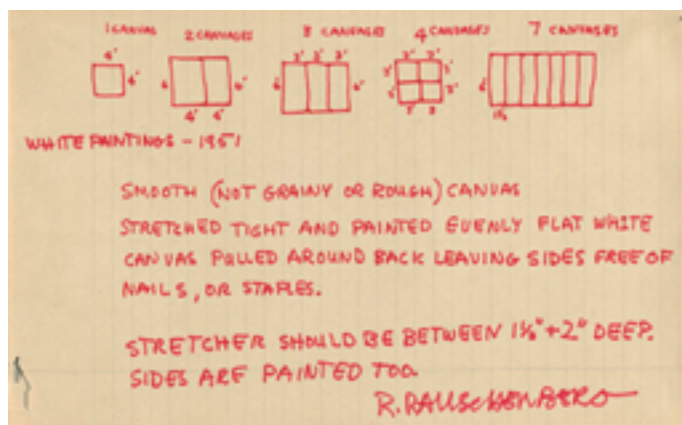 1 CANVAS 2 CANVASES 3 CANVASES 4 CANVASES 7 CANVASES
4' 3' 3' 3' 3' 3'
4' 6' 6' 6' 6'
4' 4' 3' 3
WHITE PAINTINGS - 1951
SMOOTH (NOT GRAINY OR ROUGH) CANVAS
STRETCHED TIGHT AND PAINTED EVENLY FLAT WHITE
CANVAS PULLED AROUND BACK LEAVING SIDES FREE OF
NAILS, OR STAPLES.
STRETCHER SHOULD BE BETWEEN 1½" + 2" DEEP.
SIDES ARE PAINTED TOO.
R. RAUSCHENBERG